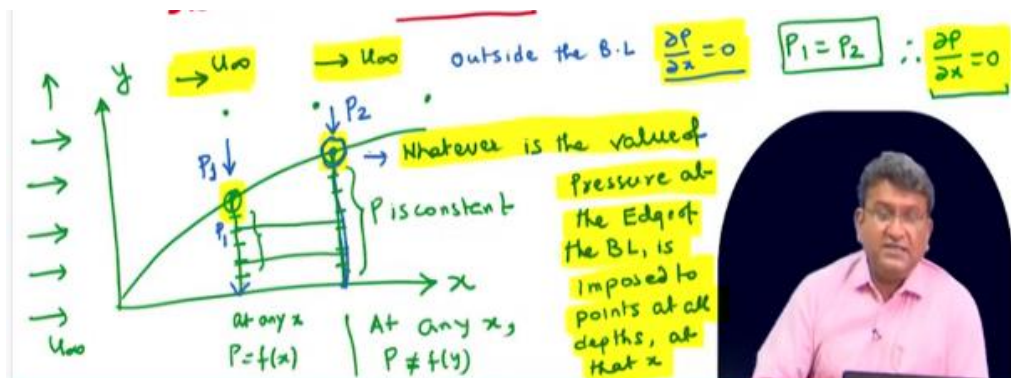 y
→ U∞
→ U∞
outside the B.L ∂P/∂x = 0
P₁ = P₂
∴ ∂P/∂x = 0
P₁
↓ P₂
→ Whatever is the value of
Pressure at
the Edge of
the BL, is
imposed to
points at all
depths, at
that x
P₁
P is constant
x
U∞
at any x
P = f(x)
At any x,
P ≠ f(y)